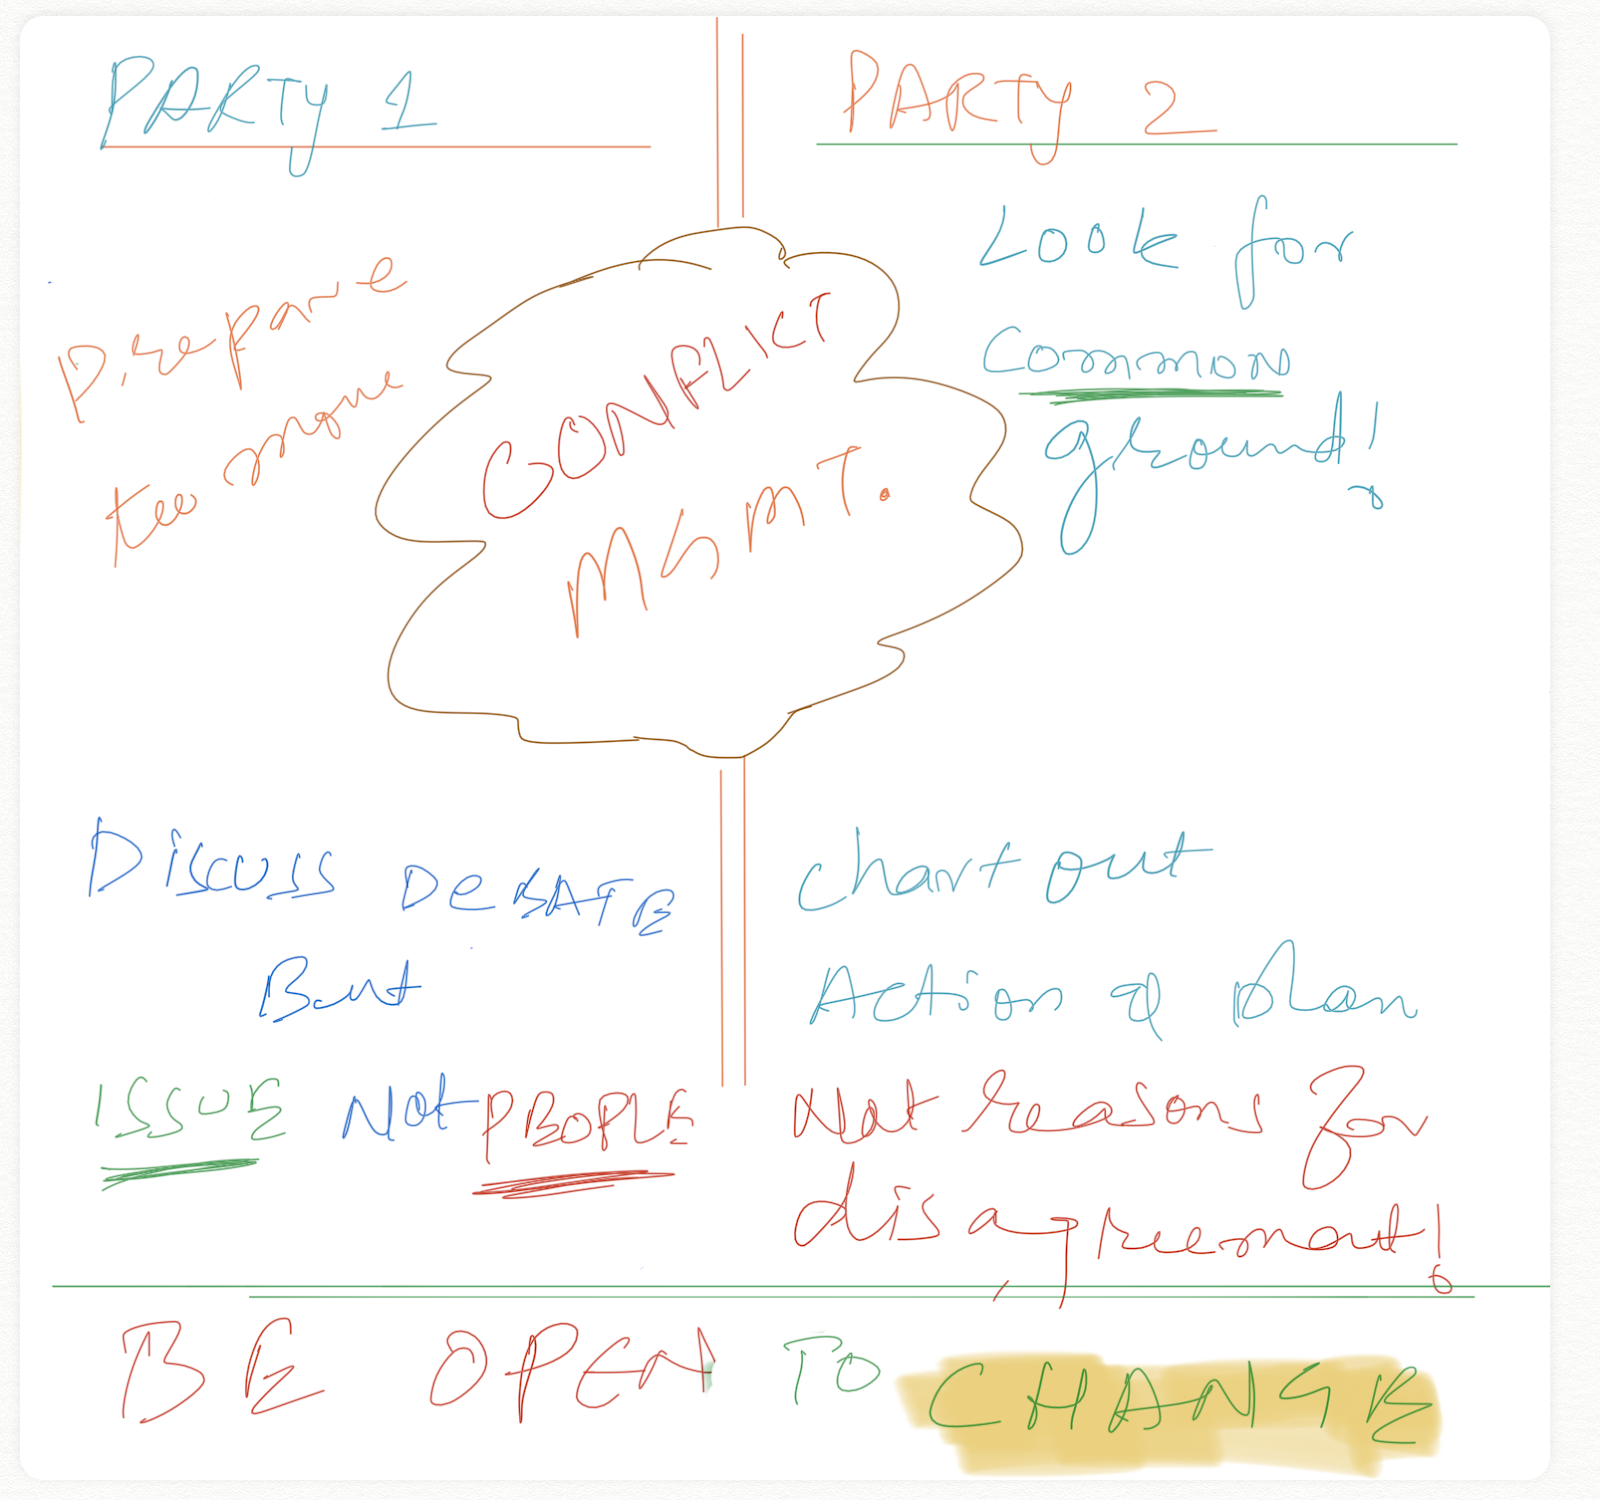 PARTY 1
PARTY 2
Prepare
too more
CONFLICT
MGMT.
Look for
Common
ground!
DISCUSS DEBATE
But
ISSUE Not PEOPLE
chart out
Action plan
Not reasons for
disagreement!
BE OPEN TO CHANGE